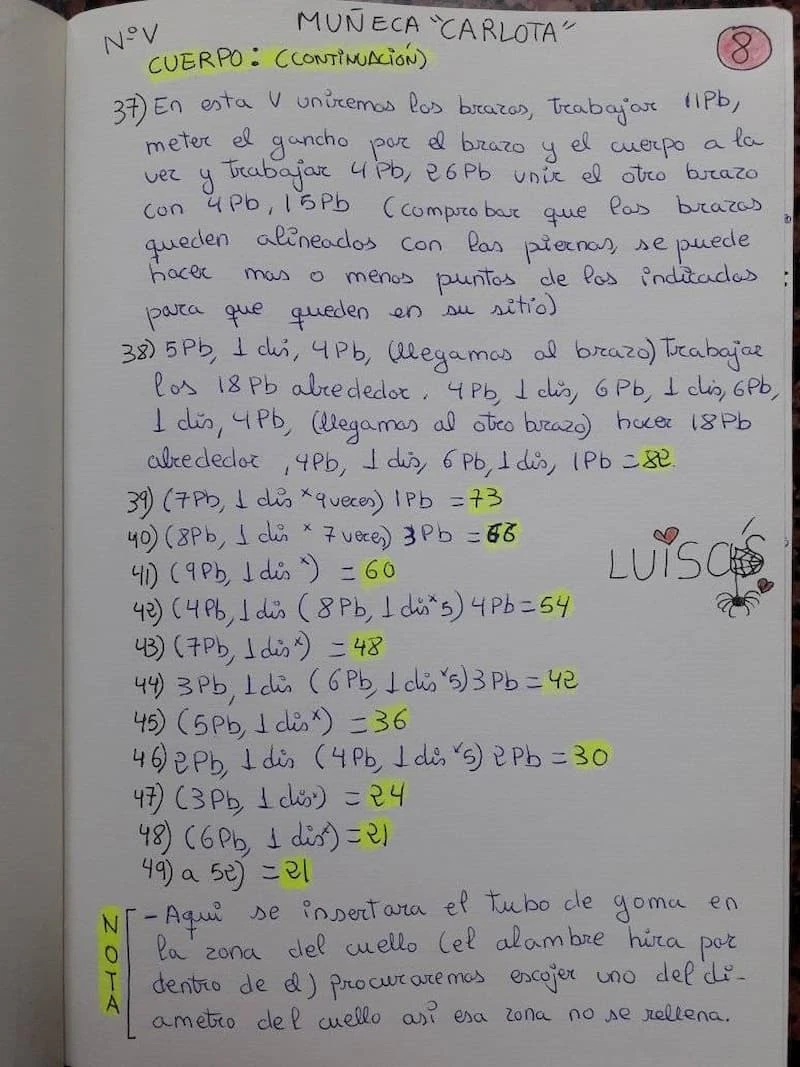 NºV
MUÑECA "CARLOTA"
8
CUERPO: (CONTINUACIÓN)
37) En esta V uniremos los brazos, trabajar 11Pb,
meter el gancho por el brazo y el cuerpo a la
vez y trabajar 4Pb, 26Pb unir el otro brazo
con 4Pb, 15Pb (comprobar que los brazos
queden alineados con las piernas, se puede
hacer mas o menos puntos de los inditados
para que queden en su sitio)
38) 5Pb, 1 dis, 4Pb, (llegamos al brazo) trabajar
los 18Pb alrededor, 4Pb, 1 dis, 6Pb, 1 dis, 6Pb,
1 dis, 4Pb, (llegamos al otro brazo) hacer 18Pb
alrededor, 4Pb, 1 dis, 6Pb, 1 dis, 1Pb = 82.
39) (7Pb, 1 dis * 9 veces) 1Pb = 73
40) (8Pb, 1 dis * 7 veces) 3Pb = 66
41) (9Pb, 1 dis *) = 60
42) (4Pb, 1 dis (8Pb, 1 dis * 5) 4Pb = 54
43) (7Pb, 1 dis *) = 48
44) 3Pb, 1 dis (6Pb, 1 dis * 5) 3Pb = 42
45) (5Pb, 1 dis *) = 36
46) 2Pb, 1 dis (4Pb, 1 dis * 5) 2Pb = 30
47) (3Pb, 1 dis *) = 24
48) (6Pb, 1 dis *) = 21
49) a 52) = 21
LUISA'S
NOTA
- Aqui se insertara el tubo de goma en
la zona del cuello (el alambre hira por
dentro de el) procuraremos escojer uno del di-
ametro del cuello así esa zona no se rellena.